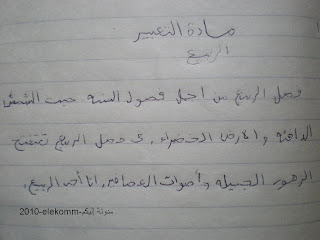 مادة التعبير
الربيع
فصل الربيع من اجمل فصول السنه حيث الشمش
الدافئه والارض الخضراء. في فصل الربيع تتفتح
الزهور الجميله وأصوات العصافير. انا أحب الربيع.
مدونة إليكم-2010-elekomm